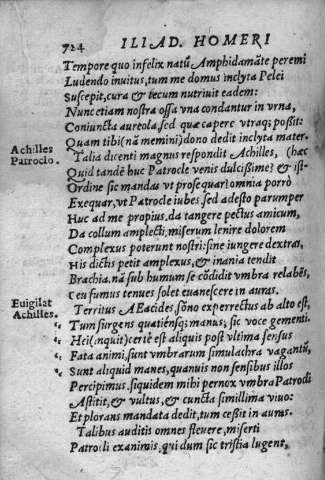 724 ILIAD. HOMERI
Tempore quo infelix natū Amphidamāte peremi
Ludendo inuitus, tum me domus inclyta Pelei
Suscepit, cura & tecum nutriuit eadem:
Nunc etiam nostra ossa vna condantur in vrna,
Coniuncta aureola, sed quæ capere vtraq; poßit:
Quam tibi (nā memini) dono dedit inclyta mater.
Achilles Patroclo.
Talia dicenti magnus respondit Achilles, (hæc
Quid tandē huc Patrocle venis dulcißime? & ist-
Ordine sic mandas vt prosequar? omnia porrò
Exequar, vt Patrocle iubes. sed adesto parumper
Huc ad me propius, da tangere pectus amicum,
Da collum amplecti, miserum lenire dolorem
Complexus poterunt nostri: sine iungere dextras,
His dictis petit amplexus, & inania tendit
Brachia. nā sub humum se cōdidit vmbra relabēs,
Ceu fumus tenues solet euanescere in auras.
Euigilat Achilles.
Territus AEacides, sōno experrectus ab alto est,
Tum surgens quatiēnsq; manus, sic voce gementi.
Hei (inquit) certè est aliquis post vltima sensus
Fata animi, sunt vmbrarum simulachra vagantū,
Sunt aliquid manes, quanuis non sensibus illos
Percipimus. siquidem mihi pernox vmbra Patrocli
Astitit, & vultus, & cuncta simillima viuo:
Et plorans mandata dedit, tum ceßit in auras.
Talibus auditis omnes fleuere, miserti
Patrocli exanimis, qui dum sic tristia lugent,